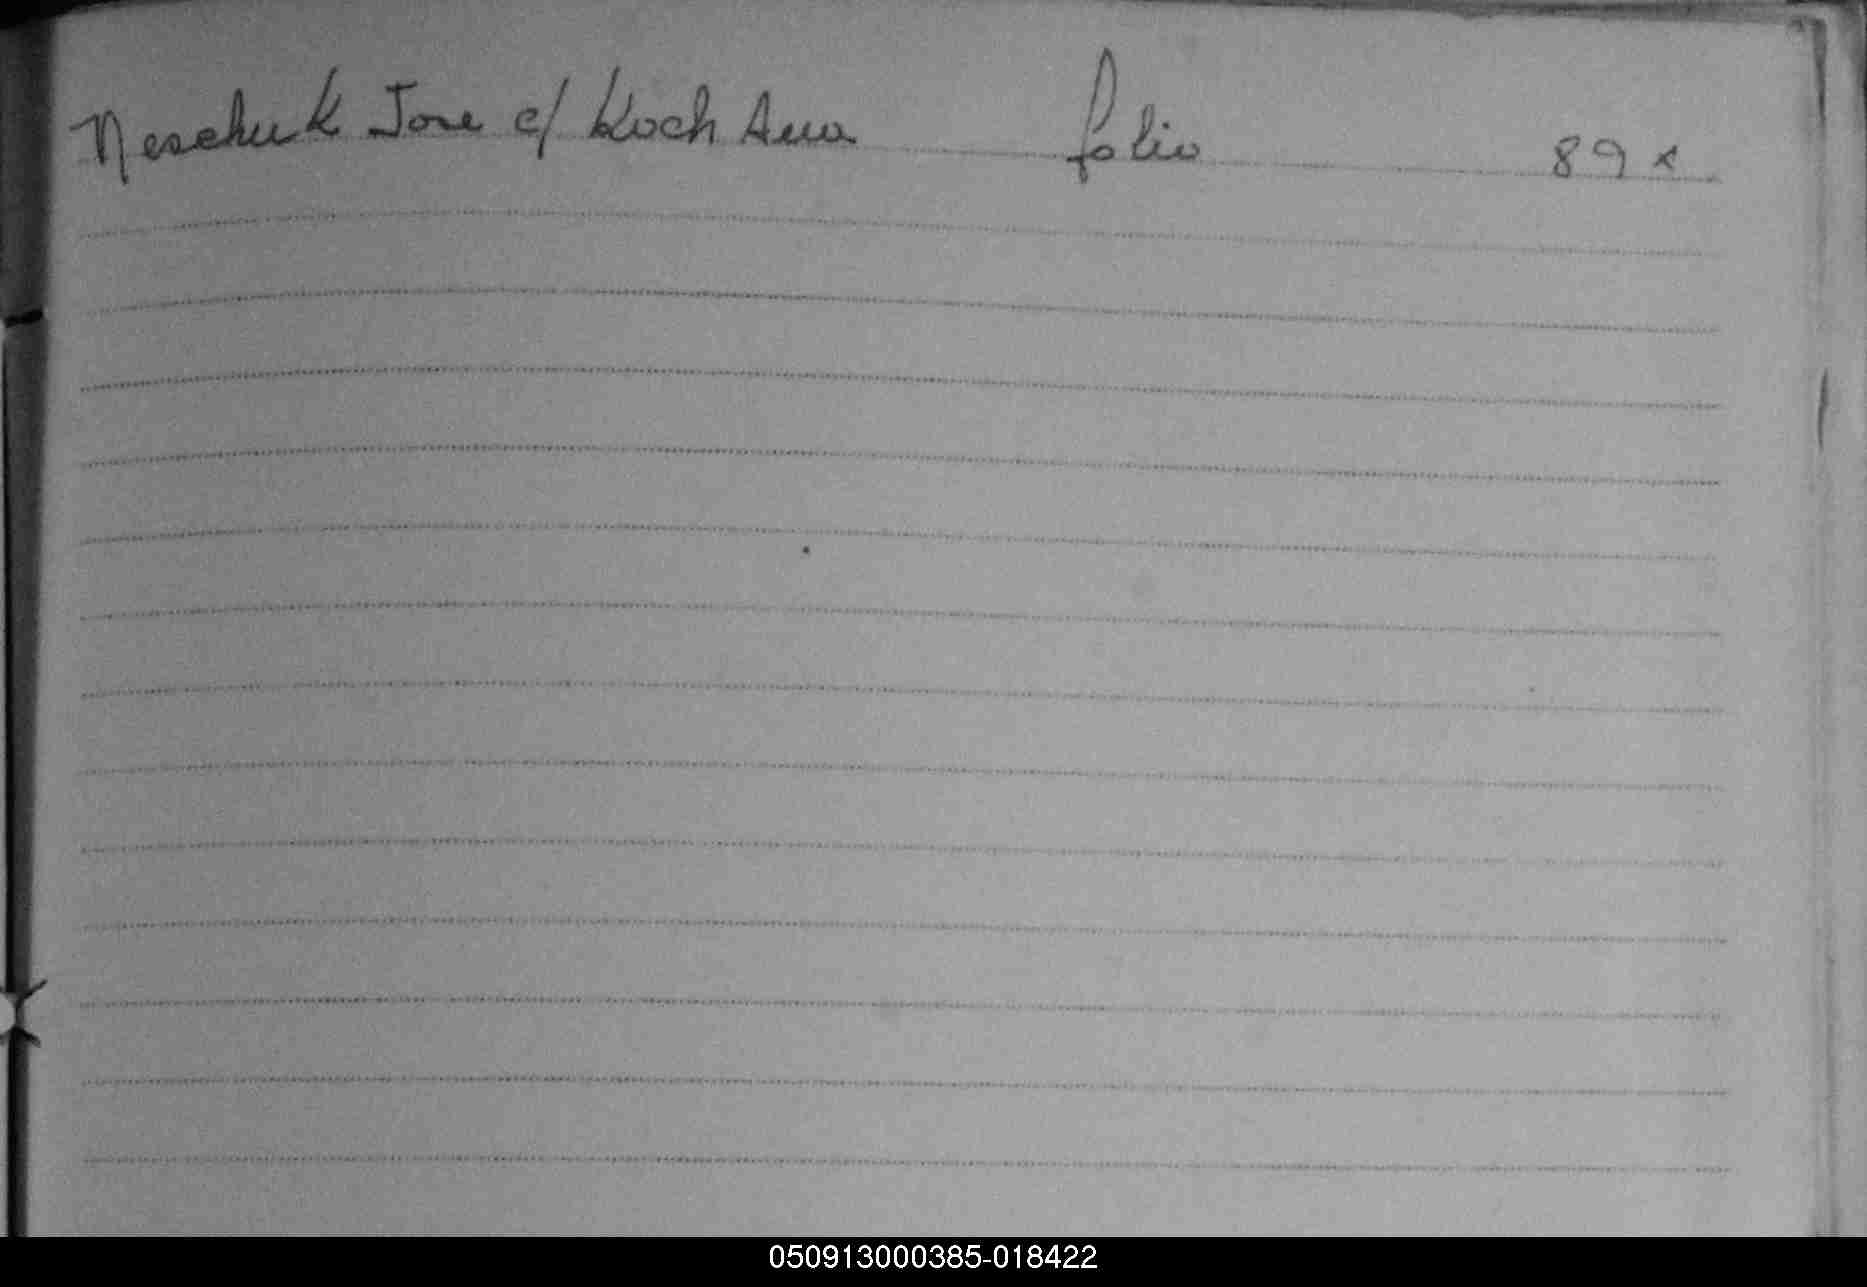 Neschuk Jose c/ Koch Ana folio 89 x
050913000385-018422